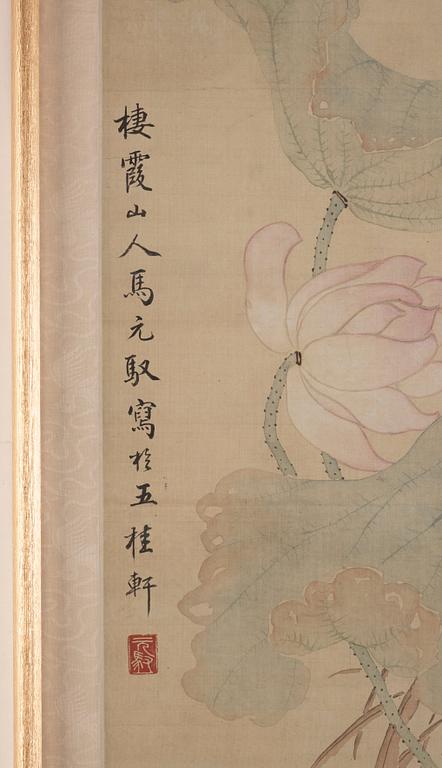 棲霞山人馬元馭寫於五桂軒
元馭